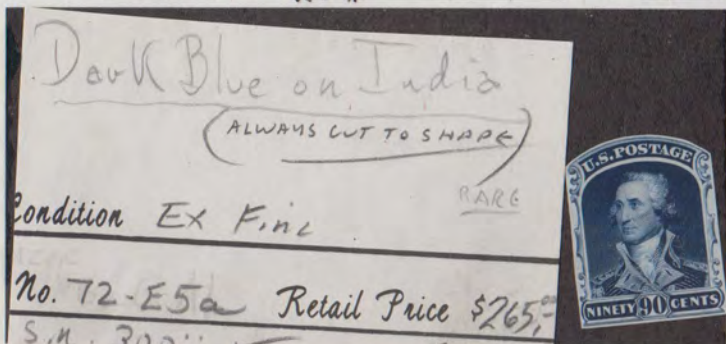 Dark Blue on India
(ALWAYS CUT TO SHAPE)
RARE
Condition Ex Fine
No. 72-E5a Retail Price $265,00
U.S. POSTAGE
NINETY 90 CENTS